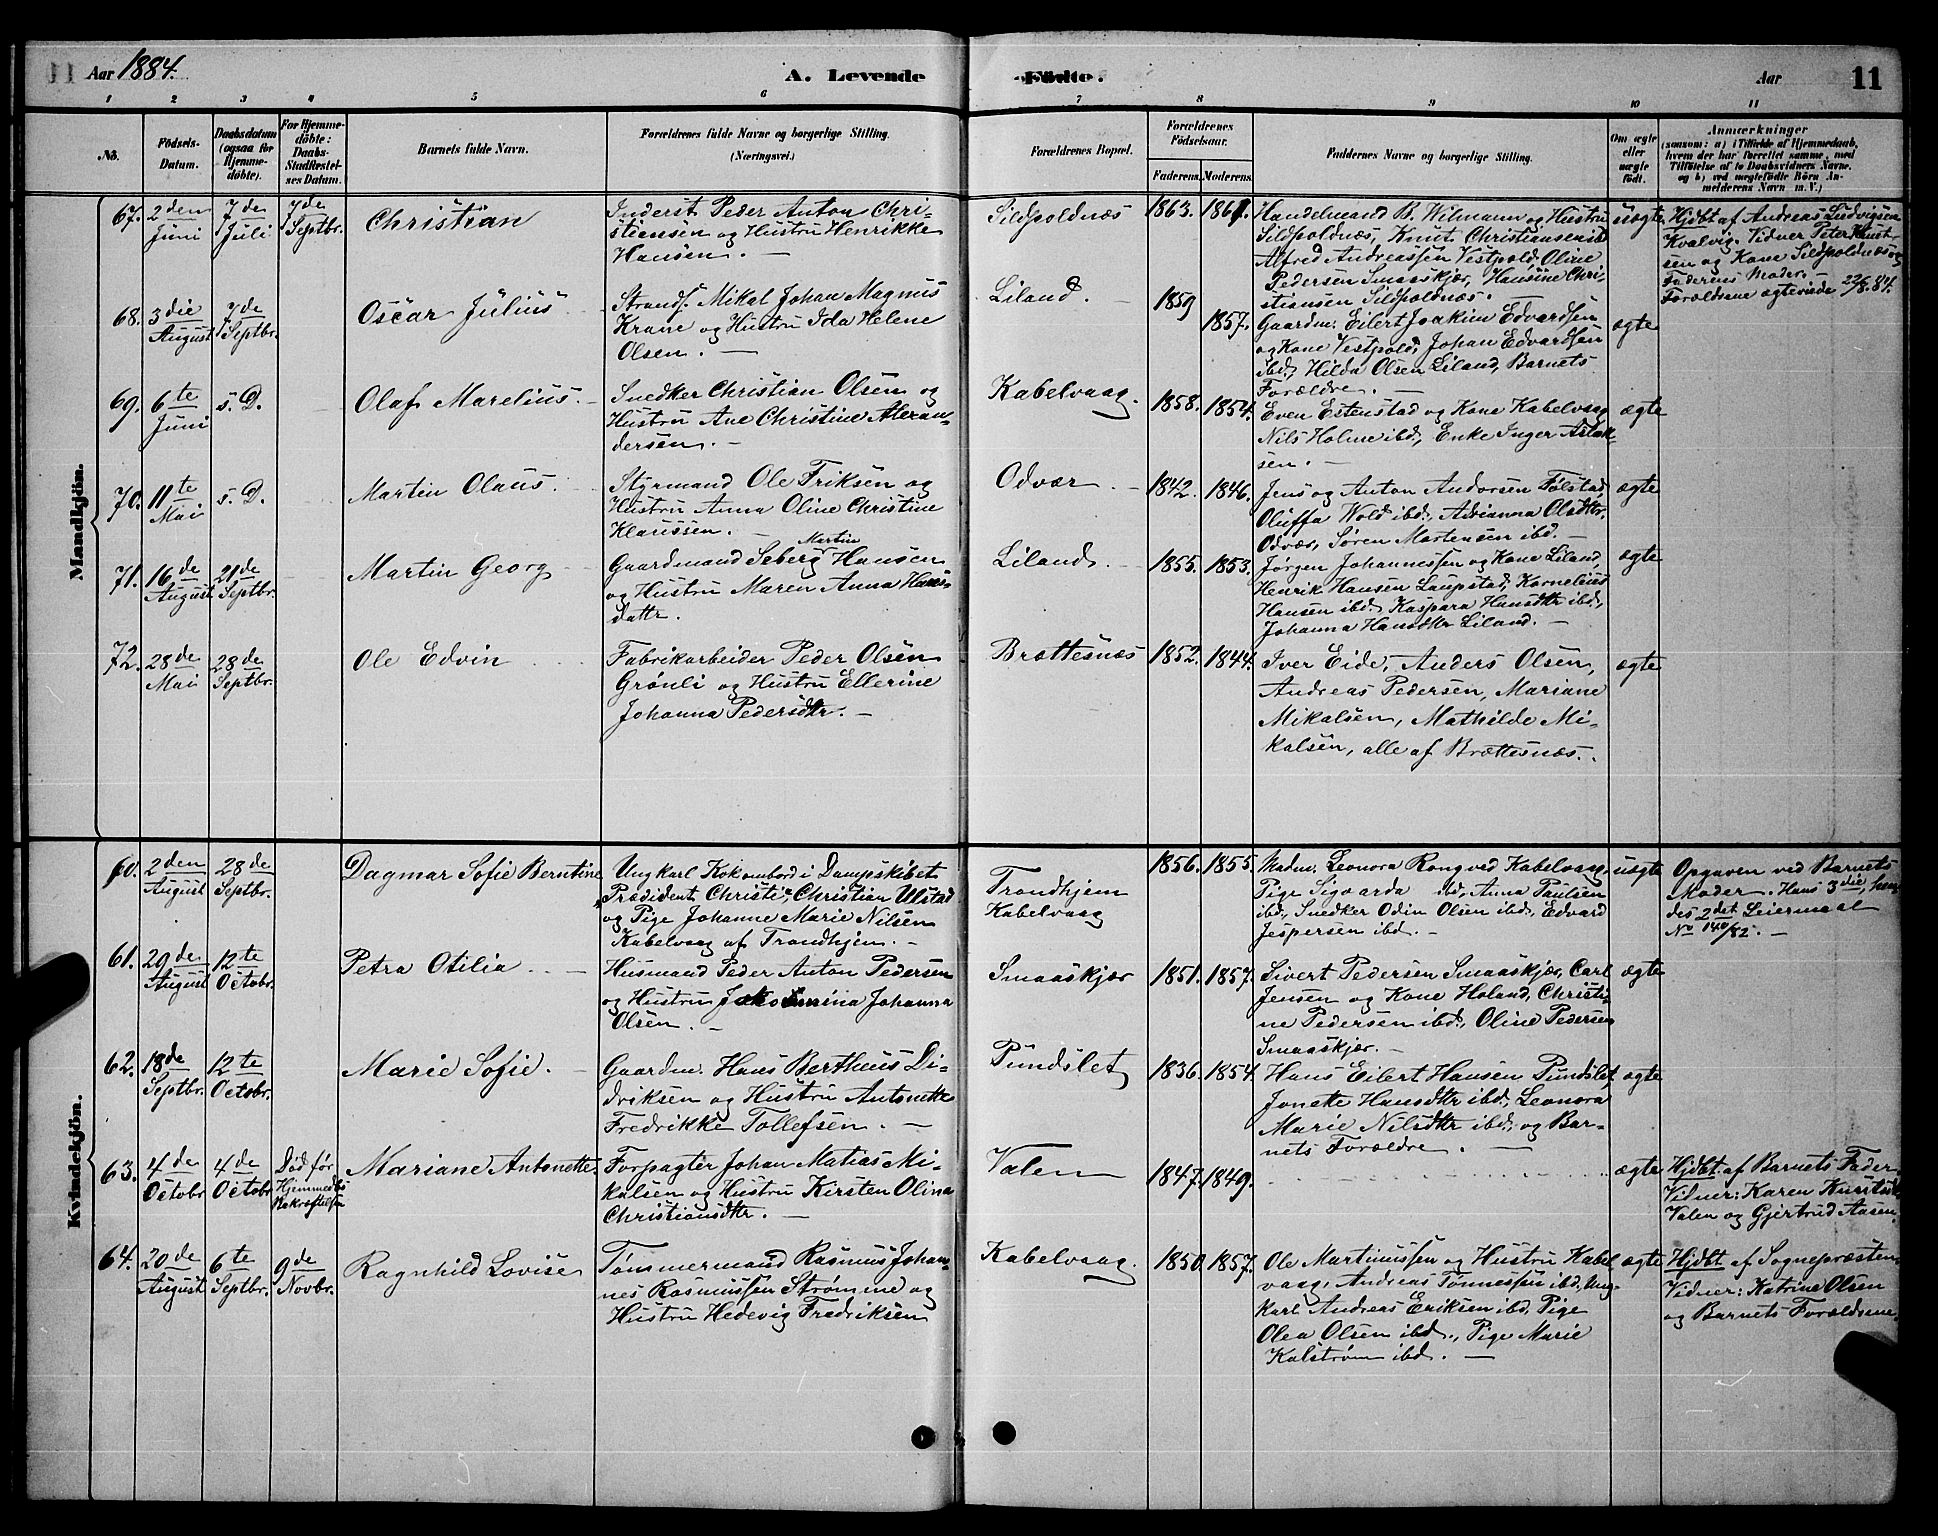 11 Aar 1884. A. Levende Fødte. Aar 11
1 2 3 4 5 6 7 8 9 10 11
No. Födsels-Datum. Daabsdatum (ogsaa for Hjemmedöbte). For Hjemmedöbte: Daabs-Stadfæstelses Datum. Barnets fulde Navn. Forældrenes fulde Navne og borgerlige Stilling. (Næringsvei.) Forældrenes Bopæl. Forældrenes Födselsaar. Faderens. Moderens. Faddernes Navne og borgerlige Stilling. Om ægte eller uægte födt. Anmærkninger (saasom: a) i Tilfælde af Hjemmedaab, hvem der har forrettet samme, med Tilföielse af to Daabsvidners Navne, og b) ved uægtefödte Börn Anmelderens Navn m. V.)
Mandkjön.
67. 2den Juni 7de Juli 7de Septbr. Christian
Inderst Peder Anton Chri-
stiansen og Hustru Henrikke
Hansen. —
Sildpoldnæs 1863. 1861.
Handelsmand B. Wilmann og Hustru
Sildpoldnæs, Knut Christiansen ibd
Alfred Andreassen Vestpold, Oline
Pedersen Smaaskjær, Hansine Chri-
stiansen Sildpoldnæs. —
uægte
Hjdbt af Andreas Ludvigsen
Kvalvig. Vidner Peter Knut-
sen og Kone Sildpoldnæs og
Faderens Moder.
Forældrene ægteviede 22/8.84.
68. 3die August 7de Septbr. Oscar Julius
Strands. Mikal Johan Magnus
Krane og Hustru Ida Helene
Olsen. —
Liland. — 1859 1857.
Gaardm. Eilert Joakim Edvardsen
og Kone Vestpold, Johan Edvardsen
ibd, Hilda Olsen Liland, Barnets
Forældre. —
ægte
69. 6te Juni s. D. Olaf Marelius. —
Snedker Christian Olsen og
Hustru Ane Christine Alexan-
dersen. —
Kabelvaag. 1858. 1854.
Even Estenstad og Kone Kabelvaag
Nils Holme ibd, Enke Inger Aslak-
sen. —
ægte
70. 11te Mai s. D. Martin Olaus.
Styrmand Ole Eriksen og
Hustru Anna Oline Christine
Klaussen. —
Odvær. — 1842. 1846.
Jens og Anton Andorsen Følstad,
Oluffa Wold ibd, Adrianna Olsdtr.
Odvær, Søren Martensen ibd. —
ægte
71. 16de August 21de Septbr. Martin Georg
Martin
Gaardmand Seberg Hansen
og Hustru Maren Anna Hans-
datter.
Liland. — 1855. 1853.
Jørgen Johannessen og Kone Liland,
Henrik Hansen Laupstad, Kornelius
Hansen ibd, Kaspara Hansdtr ibd,
Johanna Hansdtr Liland. —
ægte
72. 28de Mai 28de Septbr. Ole Edvin
Fabrikarbeider Peder Olsen
Grønli og Hustru Ellerine
Johanna Pedersdtr. —
Brættesnæs 1852. 1844.
Iver Eide, Anders Olsen,
Andreas Pedersen, Mariane
Mikalsen, Mathilde Mi-
kalsen, alle af Brættesnæs.
ægte
Kvindekjön.
60. 2den August 28de Septbr. Dagmar Sofie Berntine
Ungkarl Kok ombord i Dampskibet
Præsident Christie, Christian Ulstad
og Pige Johanne Marie Nilsen
Kabelvaag af Trondhjem. —
Trondhjem
Kabelvaag
1856. 1855.
Madm. Leonora Rongved Kabelvaag,
Pige Sigvarda ibd, Anna Paulsen
ibd, Snedker Odin Olsen ibd, Edvard
Jespersen ibd. —
uægte
Opgaven ved Barnets
Moder. Hans 3die, hen-
des 2det Leiermaal
No 140/82. —
61. 29de August 12te Octobr. Petra Otilia
Husmand Peder Anton Pedersen
og Hustru Jakobmina Johanna
Olsen. —
Smaaskjær 1851. 1857.
Sivert Pedersen Smaaskjær, Carl
Jensen og Kone Holand, Christi-
ne Pedersen ibd, Oline Pedersen
Smaaskjær. —
ægte
62. 18de Septbr. 12te Octobr. Marie Sofie. —
Gaardm. Hans Bertheus Di-
driksen og Hustru Antonette
Fredrikke Tollefsen. —
Pundslet 1836. 1854.
Hans Eilert Hansen Pundslet,
Jonette Hansdtr ibd, Leonora
Marie Nilsdtr ibd, og Bar-
nets Forældre. —
ægte
63. 4de Octobr 4de Octobr Død før Hjemmedbs Bekræftelsen Mariane Antonette
Forpagter Johan Matias Mi-
kalsen og Hustru Kirsten Olina
Christiansdtr. —
Valen 1847. 1849.
ægte
Hjdbt af Barnets Fader
Vidner: Karen
Valen og Gjertrud Aasen
64. 20de August 6te Septbr. 9de Novbr. Ragnhild Lovise
Tømmermand Rasmus Johan-
nes Rasmussen Strømme og
Hustru Hedevig Fredriksen
Kabelvaag. 1850. 1857.
Ole Martinussen og Hustru Kabel-
vaag, Andreas Tønnessen ibd, Ung-
karl Andreas Eriksen ibd, Pige
Olea Olsen ibd., Pige Marie
Kalstrøm ibd. —
ægte
Hjdbt af Sognepræsten
Vidner: Katrine Olsen
og Barnets Forældrene.